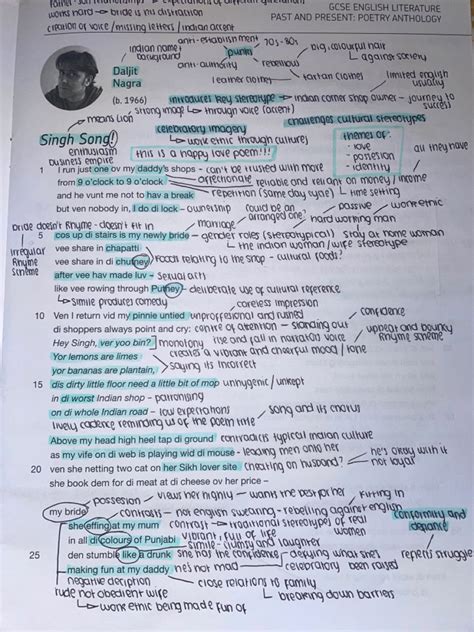 GCSE ENGLISH LITERATURE
PAST AND PRESENT: POETRY ANTHOLOGY
works hard → bride is his distraction
creation of voice / missing letters / Indian accent
anti-establishment 70's-80s
Indian name / background
punks
big, colourful hair
against society
anti-authority
rebellious
leather clothes
tartan clothes
limited english usually
Daljit
Nagra
(b. 1966)
introduces key stereotype → indian corner shop owner - journey to success
strong image → through voice (accent)
means Lion
celebratory imagery
challenges cultural stereotypes
Singh Song!
work ethic through culture
enthusiasm
business empire
this is a happy love poem!!!
themes of:
- love
- possesion
- identity
all they have
1 I run just one ov my daddy's shops - can't be trusted with more
affectionate
from 9 o'clock to 9 o'clock reliable and reliant on money/income
and he vunt me not to hav a break repetition (same day cycle) time setting
but ven nobody in, I do di lock - ownership
could be an arranged one?
passive
work ethic
marriage
hard working man
bride doesn't rhyme - doesn't fit in
5 cos up di stairs is my newly bride - gender roles (stereotypical) stay at home woman
the indian woman/wife stereotype
Irregular Rhyme scheme
vee share in chapatti
vee share in di chutney foods relating to the shop - cultural foods?
after vee hav made luv - sexual acts
like vee rowing through Putney - deliberate use of cultural reference
simile produces comedy
careless impression
10 Ven I return vid my pinnie untied unproffesional and rushed
confidence
di shoppers always point and cry: centre of attention - standing out
upbeat and bouncy Rhyme scheme
Hey Singh, ver yoo bin? monotony rise and fall in narrators voice
Yor lemons are limes creates a vibrant and cheerful mood / tone
yor bananas are plantain, saying its incorrect
15 dis dirty little floor need a little bit of mop unhygenic / unkept
in di worst Indian shop - patronising
on di whole Indian road - low expectations
song and its chorus
lively cadence reminding us of the poem title
Above my head high heel tap di ground contradicts typical indian culture
as my vife on di web is playing wid di mouse - leading men onto her
he's okay with it
20 ven she netting two cat on her Sikh lover site cheating on husband? not loyal
she book dem for di meat at di cheese ov her price –
possesion
views her highly - wants the best for her
fitting in
my bride
contrasts - not english swearing - rebelling against english
conformity and defiance
she effing at my mum contrast → traditional stereotypes of real women
vibrant, full of life
in all di colours of Punjabi
simile - clumsy and laughter
25 den stumble like a drunk she has the confidence defying what she's
celebratory been raised
repeats struggle
making fun at my daddy he's not mad
negative
close relations to family
rude not obedient wife
breaking down barriers
work ethic being made fun of